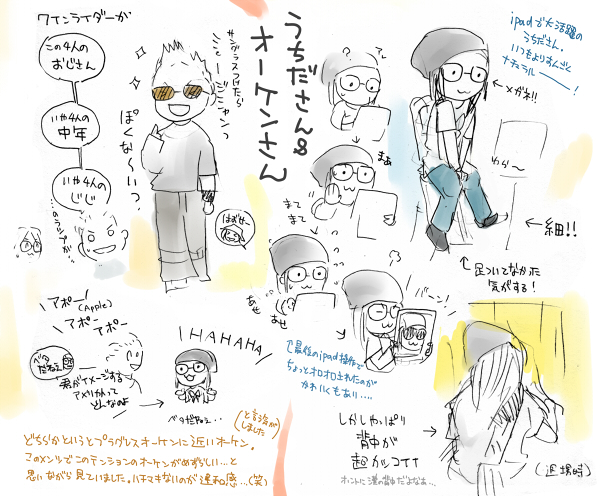 ワインライダーが
この4人の
おじさん
いや4人の
中年
いや4人の
じじ
サングラスつけたら
ジョー・ジニャンっ
ぽくな〜いっ?
はおサー
うちださん&
オーケンさん
ipadで大活躍の
うちださん。
いつもよりすんごく
ナチュラルーーー!
←メガネ!!
?
アレ
まあ
まて
まて
あせ
あせ
バーン!
わら〜
←細!!
足ついてなかった
気がする!
で最後のipad操作で
ちょっとオロオロされたのが
かわいくもあり…。
アポー(Apple)
アポー
アポー
ベタ
だねぇ
君がイメージする
アメリカって
どんなのよ
IHAHAHA
ベタだねぇ…
(と言及が
しました)
どちらかというとプラグレスオーケンに近いオーケン。
このメンツでこのテンションのオーケンがめずらしい…と
思いながら見ていました。ハチマキないのが違和感…(笑)
しかしやっぱり
背中が
超カッコイイ
ホントに漢の背中だよなぁ…
(退場時)